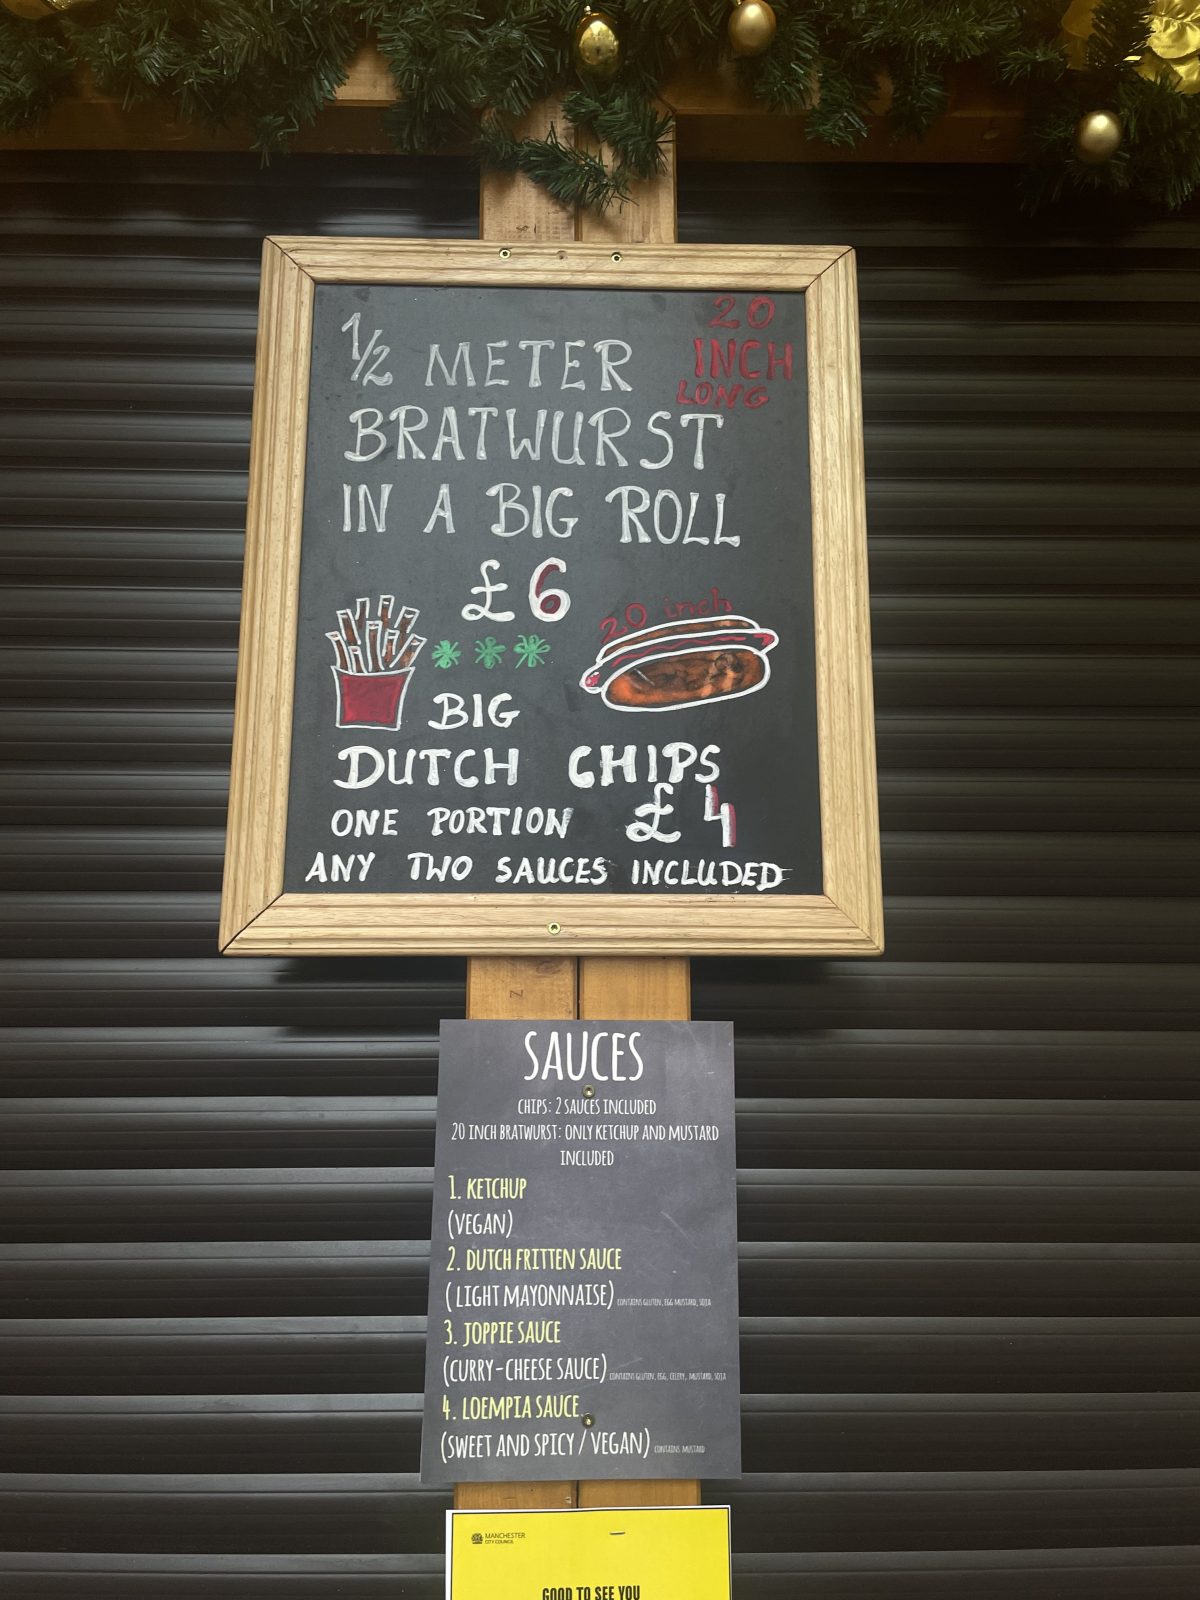 20
INCH
LONG
1/2 METER
BRATWURST
IN A BIG ROLL
£6
20 inch
BIG
DUTCH CHIPS
ONE PORTION £4
ANY TWO SAUCES INCLUDED
SAUCES
CHIPS: 2 SAUCES INCLUDED
20 INCH BRATWURST: ONLY KETCHUP AND MUSTARD
INCLUDED
1. KETCHUP
(VEGAN)
2. DUTCH FRITTEN SAUCE
( LIGHT MAYONNAISE) CONTAINS GLUTEN, EGG MUSTARD, SOJA
3. JOPPIE SAUCE
(CURRY-CHEESE SAUCE) CONTAINS GLUTEN, EGG, CELERY, MUSTARD, SOJA
4. LOEMPIA SAUCE
(SWEET AND SPICY / VEGAN) CONTAINS MUSTARD
MANCHESTER
CITY COUNCIL
GOOD TO SEE YOU